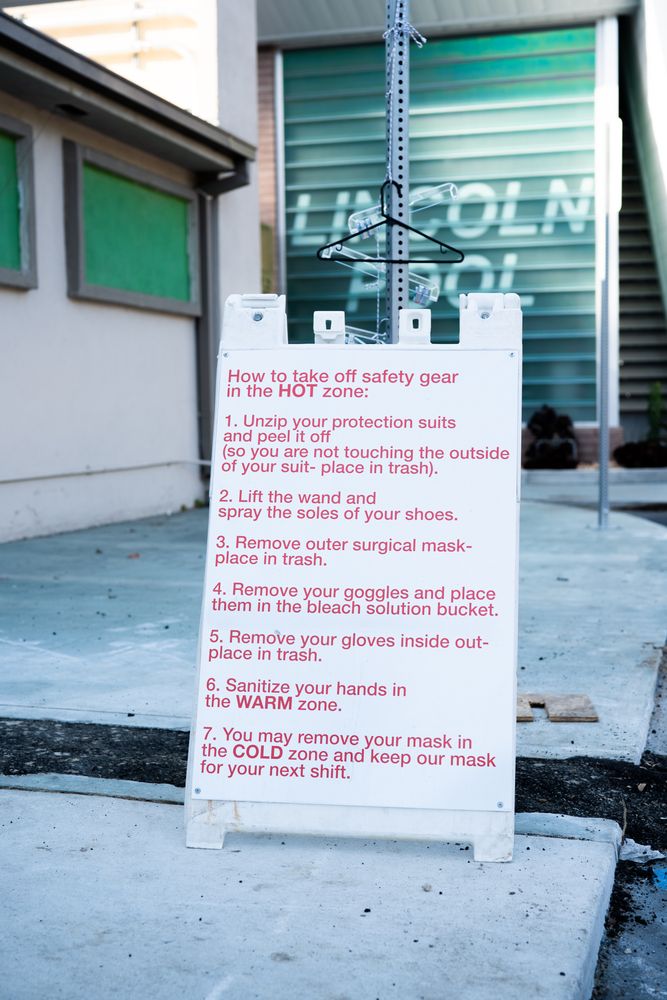 LINCOLN
POOL
How to take off safety gear
in the HOT zone:
1. Unzip your protection suits
and peel it off
(so you are not touching the outside
of your suit- place in trash).
2. Lift the wand and
spray the soles of your shoes.
3. Remove outer surgical mask-
place in trash.
4. Remove your goggles and place
them in the bleach solution bucket.
5. Remove your gloves inside out-
place in trash.
6. Sanitize your hands in
the WARM zone.
7. You may remove your mask in
the COLD zone and keep our mask
for your next shift.